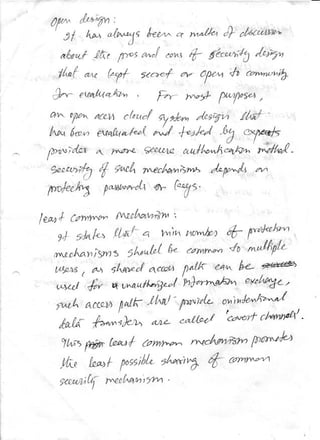 open design:
It has always been a matter of discussion
about the pros and cons of security design
that are kept secret or open to community
for evaluation. For most purposes,
an open access cloud system design that
has been evaluated and tested by experts
provides a more secure authentication method.
security of such mechanisms depends on
protecting passwords or keys.
least common mechanism:
It states that a min number of protection
mechanisms should be common to multiple
users, as shared access path can be
used for unauthorized information exchange,
such access path that provide unintentional
data transfers are called 'covert channels'.
This least common mechanism promotes
the least possible sharing of common
security mechanism.